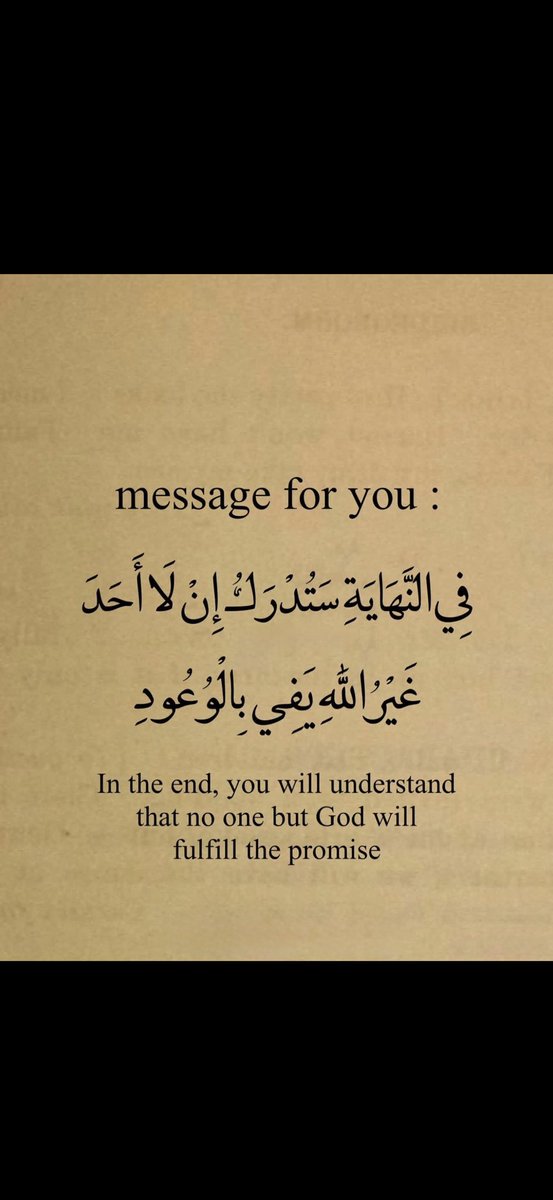 message for you :
فِي النَّهَايَةِ سَتُدْرَكُ إِنْ لَا أَحَدَ
غَيْرُ اللّٰهِ يَفِي بِالْوُعُودِ
In the end, you will understand
that no one but God will
fulfill the promise